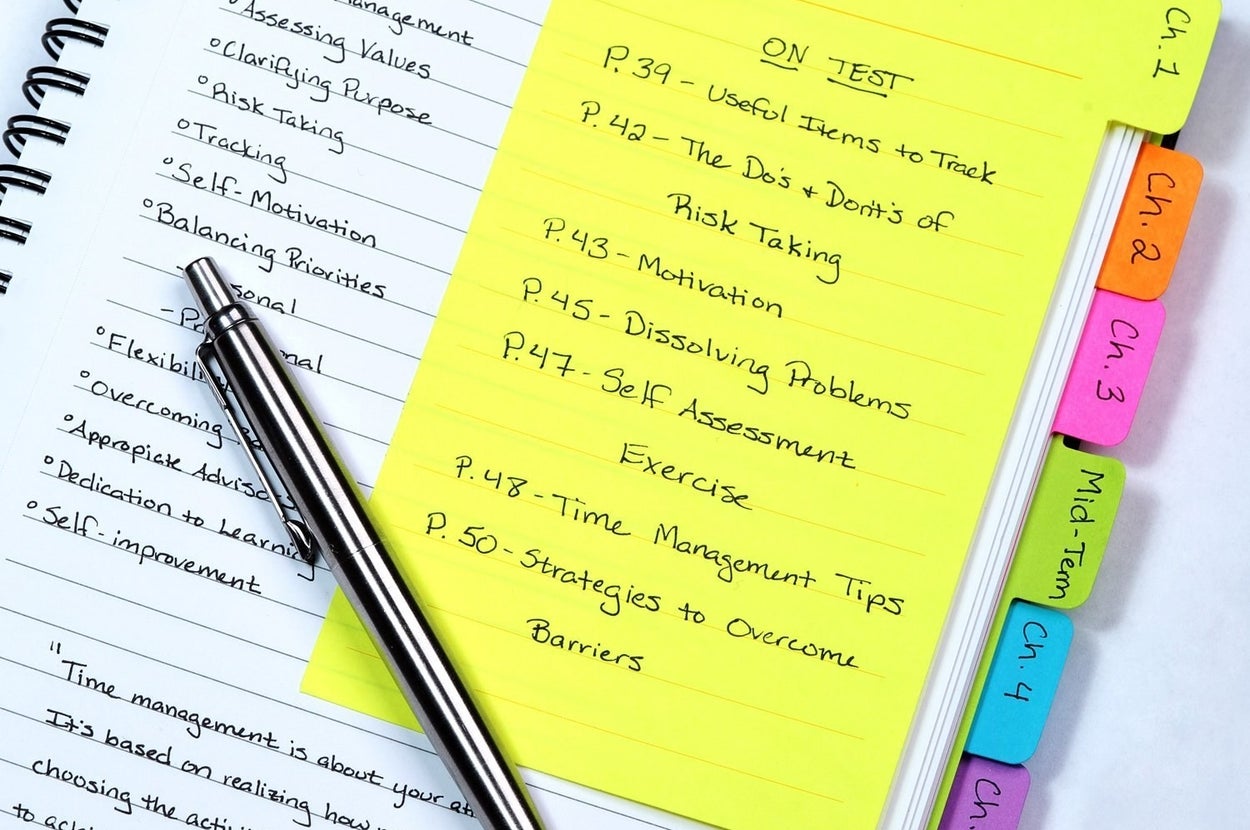 °Assessing Values
°Clarifying Purpose
°Risk Taking
°Tracking
°Self-Motivation
°Balancing Priorities
°Overcoming
°Appropiate
°Dedication to Learning
°Self-improvement
"Time management is about your
It's based on realizing how
choosing the
to
ON TEST
P.39 - Useful Items to Track
P.42 - The Do's + Dont's of
Risk Taking
P.43 - Motivation
P.45 - Dissolving Problems
P.47 - Self Assessment
Exercise
P.48 - Time Management Tips
P.50 - Strategies to Overcome
Barriers
Ch. 1
Ch. 2
Ch. 3
Mid-Term
Ch. 4
Ch.